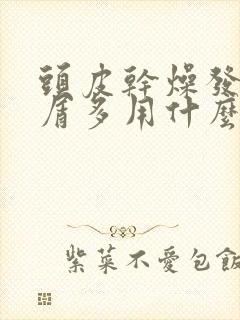 頭皮幹燥發
屑多用什麽
紫菜不愛包飯